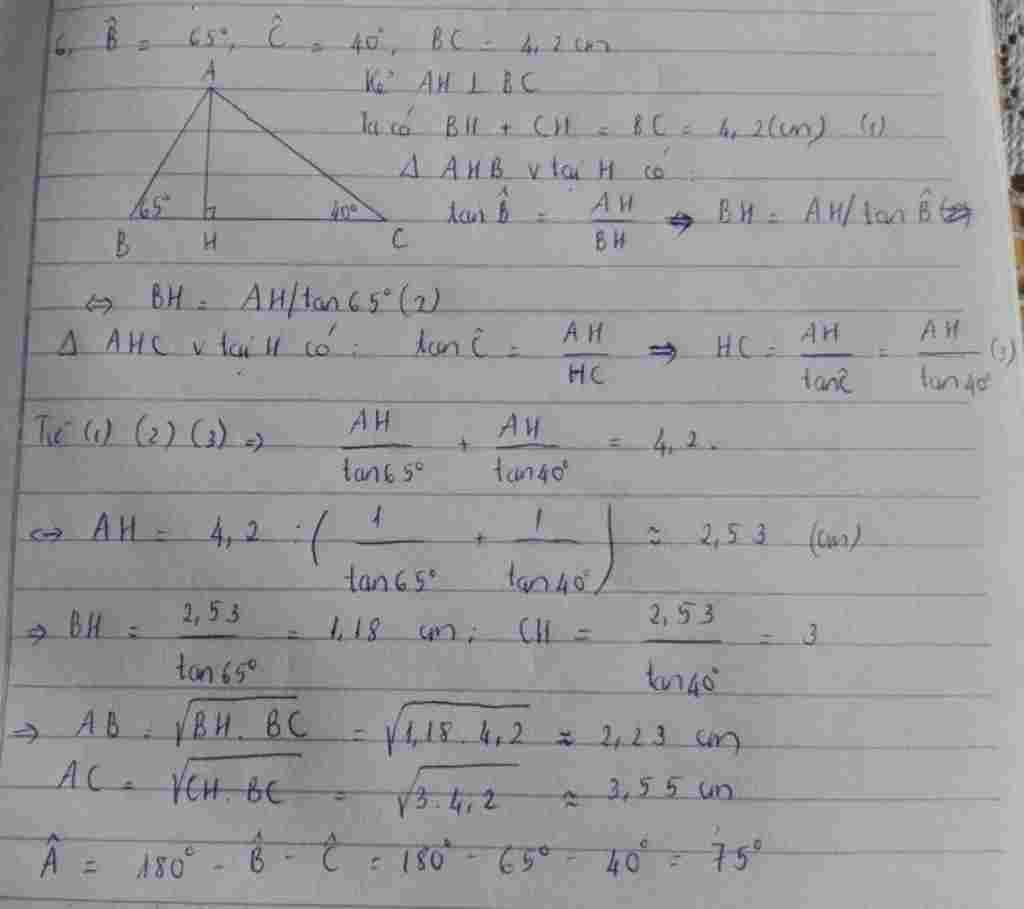 6, B̂ = 65°, Ĉ = 40°, BC = 4,2 cm
A
Kẻ AH ⊥ BC
Ta có BH + CH = BC = 4,2 (cm) (1)
Δ AHB v tại H có :
65° 40°
B H C
tan B̂ = AH/BH ⇒ BH = AH/tan B̂
⇔ BH = AH/tan65° (2)
Δ AHC v tại H có : tan Ĉ = AH/HC ⇒ HC = AH/tan Ĉ = AH/tan40° (3)
Từ (1) (2) (3) ⇒ AH/tan65° + AH/tan40° = 4,2.
⇔ AH = 4,2 : (1/tan65° + 1/tan40°) ≈ 2,53 (cm)
⇒ BH = 2,53/tan65° = 1,18 cm ; CH = 2,53/tan40° = 3
⇒ AB = √BH.BC = √1,18.4,2 ≈ 2,23 cm
AC = √CH.BC = √3.4,2 ≈ 3,55 cm
Â = 180° - B̂ - Ĉ = 180° - 65° - 40° = 75°